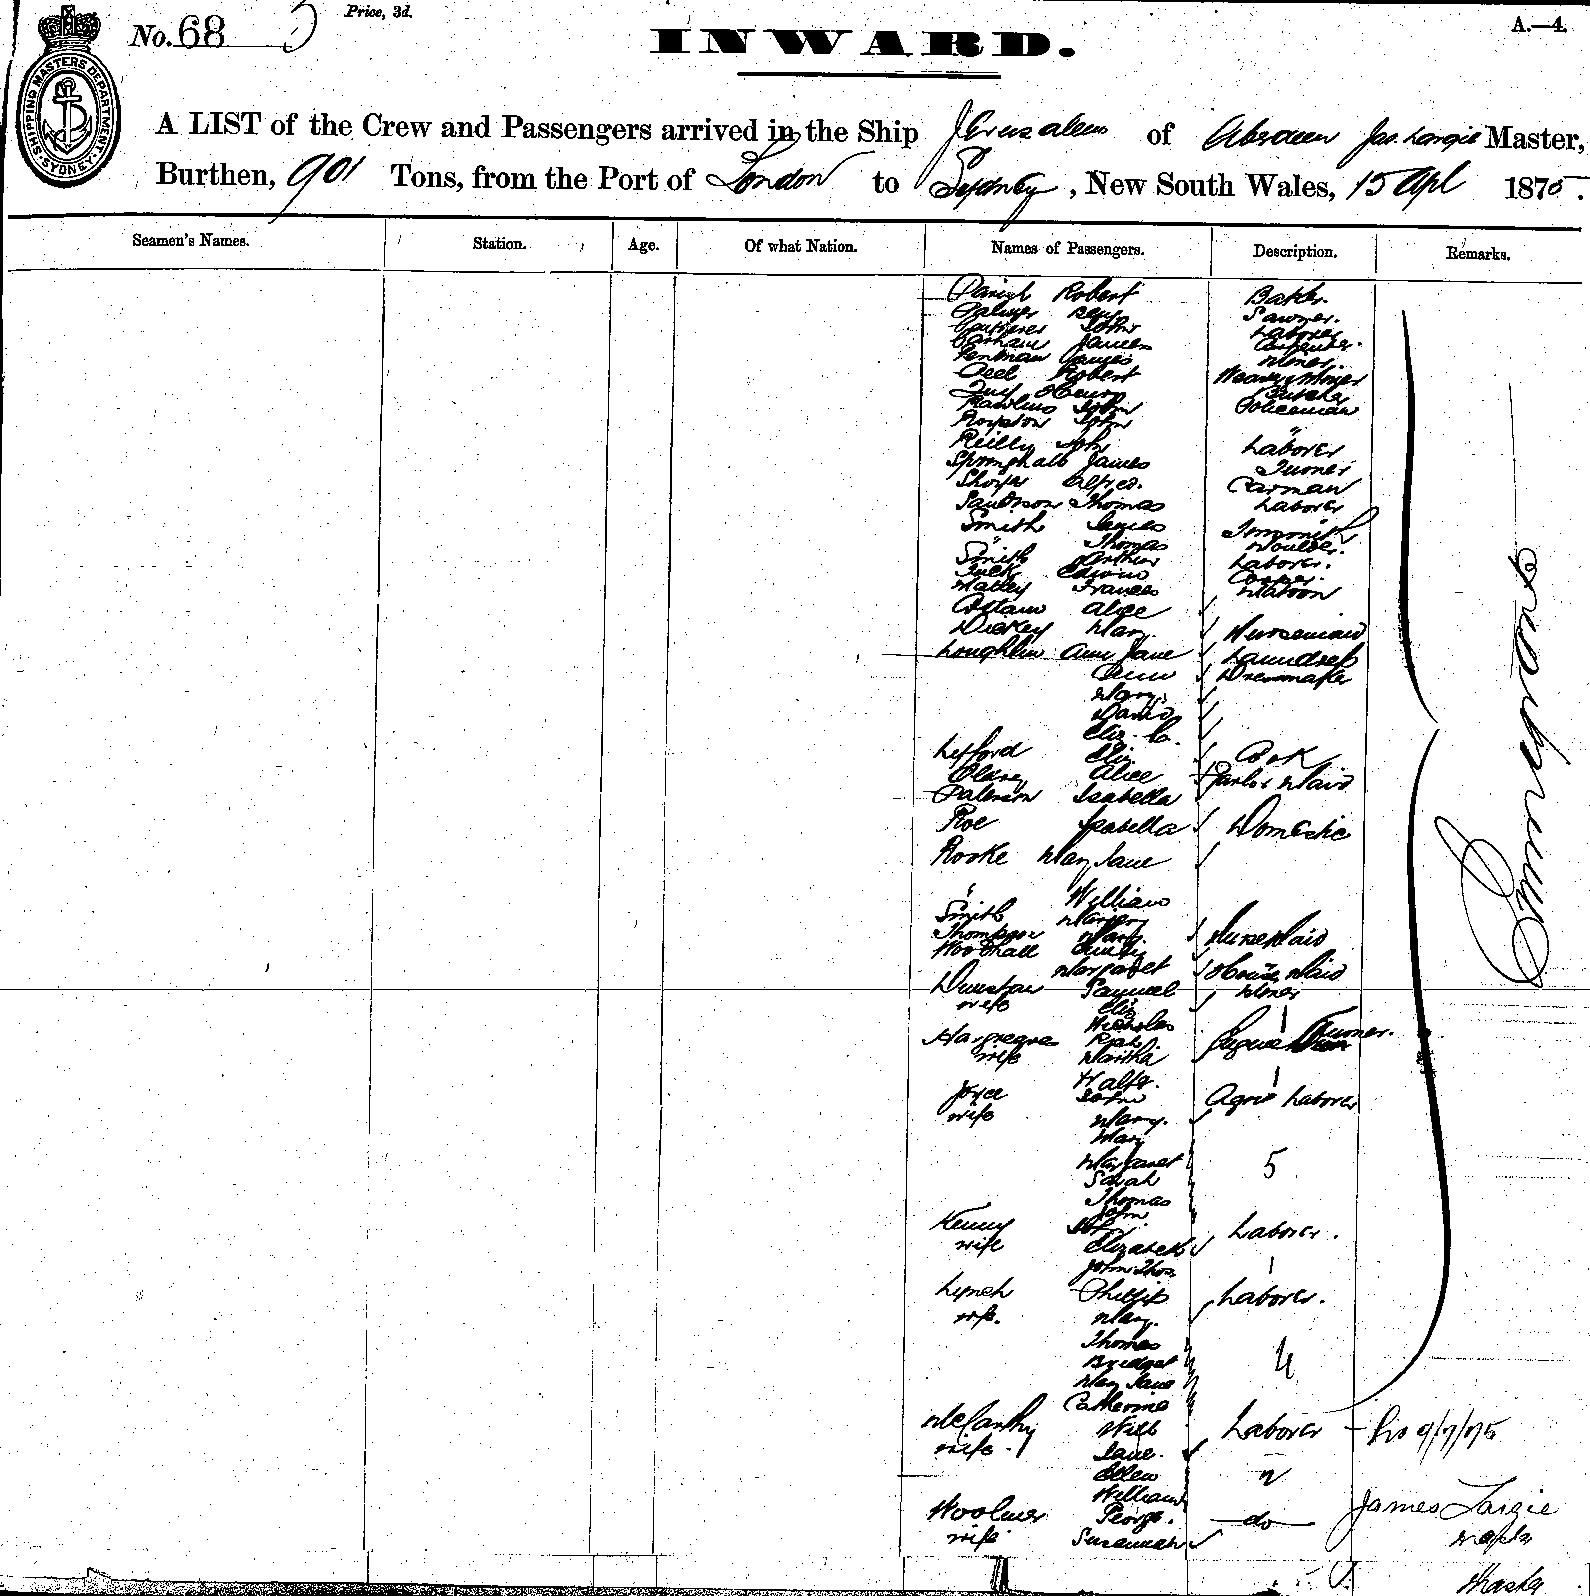 No. 68
Price, 3d.
A.—4.
SHIPPING MASTERS DEPARTMENT SYDNEY
INWARD.
A LIST of the Crew and Passengers arrived in the Ship Jerusalem of Aberdeen Jas. Largie Master,
Burthen, 901 Tons, from the Port of London to Sydney, New South Wales, 15 Apl 1875.
Seamen's Names. Station. Age. Of what Nation. Names of Passengers. Description. Remarks.
Robert Baker.
Palmer Benj Sawyer.
John Laborer
James Carpenter.
Penman James Miner.
Robert Weaver & Miner
Henry Butcher
Rawlins John Policeman
Royston John "
Reilly John Laborer
Springhall James Turner
Sharpe Alfred. Carman
Thomas Laborer
Smith James Tinsmith
" Thomas Moulder.
Smith Arthur Laborer.
Tuck Edwin Cooper.
Frances Matron
Alice
Dickey Mary Nursemaid
Loughlin Ann Jane Laundress
Ann Dressmaker
Mary
David
Eliz. C.
Lefford Eliz Cook
Alice Parlor Maid
Paterson Isabella
Roe Isabella Domestic
Rooke Mary Jane
" William
Smith Margery
Thompson Mary. Nurse Maid
Woodhall Emily
Margaret House Maid
Dunstan Samuel Miner
wife Eliz
Nicholas 1
Hargreaves Rich Turner.
wife Martha
Walter. 1
Joyce John Agril Laborer
wife Mary.
Mary
Margaret 5
Sarah
Thomas
John
Kenny John Laborer.
wife Elizabeth
John Thos 1
Lynch Phillip Laborer.
wife. Mary.
Thomas
Bridget 4
Mary Jane
Catherine
McCarthy Will Laborer 9/7/75
wife. Jane.
Ellen 2
William
Woolmer George. do
wife Susannah
James Largie
Master